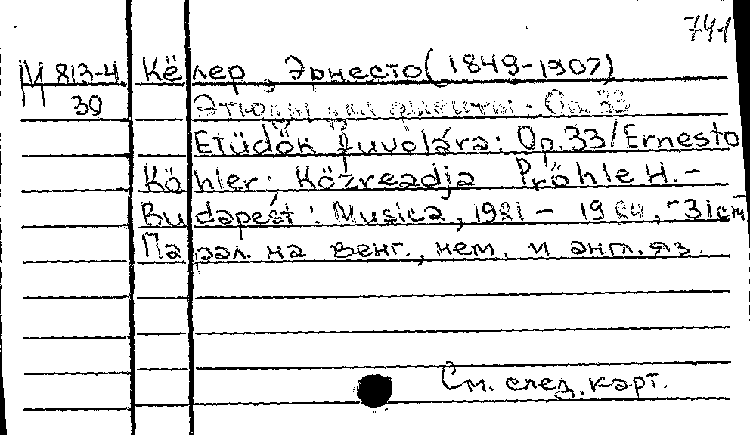 741
М 813-4 Кёлер, Эрнесто (1849-1907)
39 Этюды для флейты. Ор. 33
Etüdök fuvolára: Op. 33 / Ernesto
Köhler; Közreadja Pröhle H. -
Budapest: Musica, 1981 - 1984, - 31cm
Парал. на венг., нем. и англ. яз.
См. след. карт.